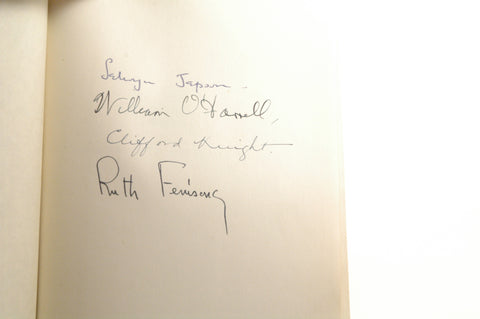 Selwyn Jepson.
William O'Farrell,
Clifford Knight.
Ruth Fenisong